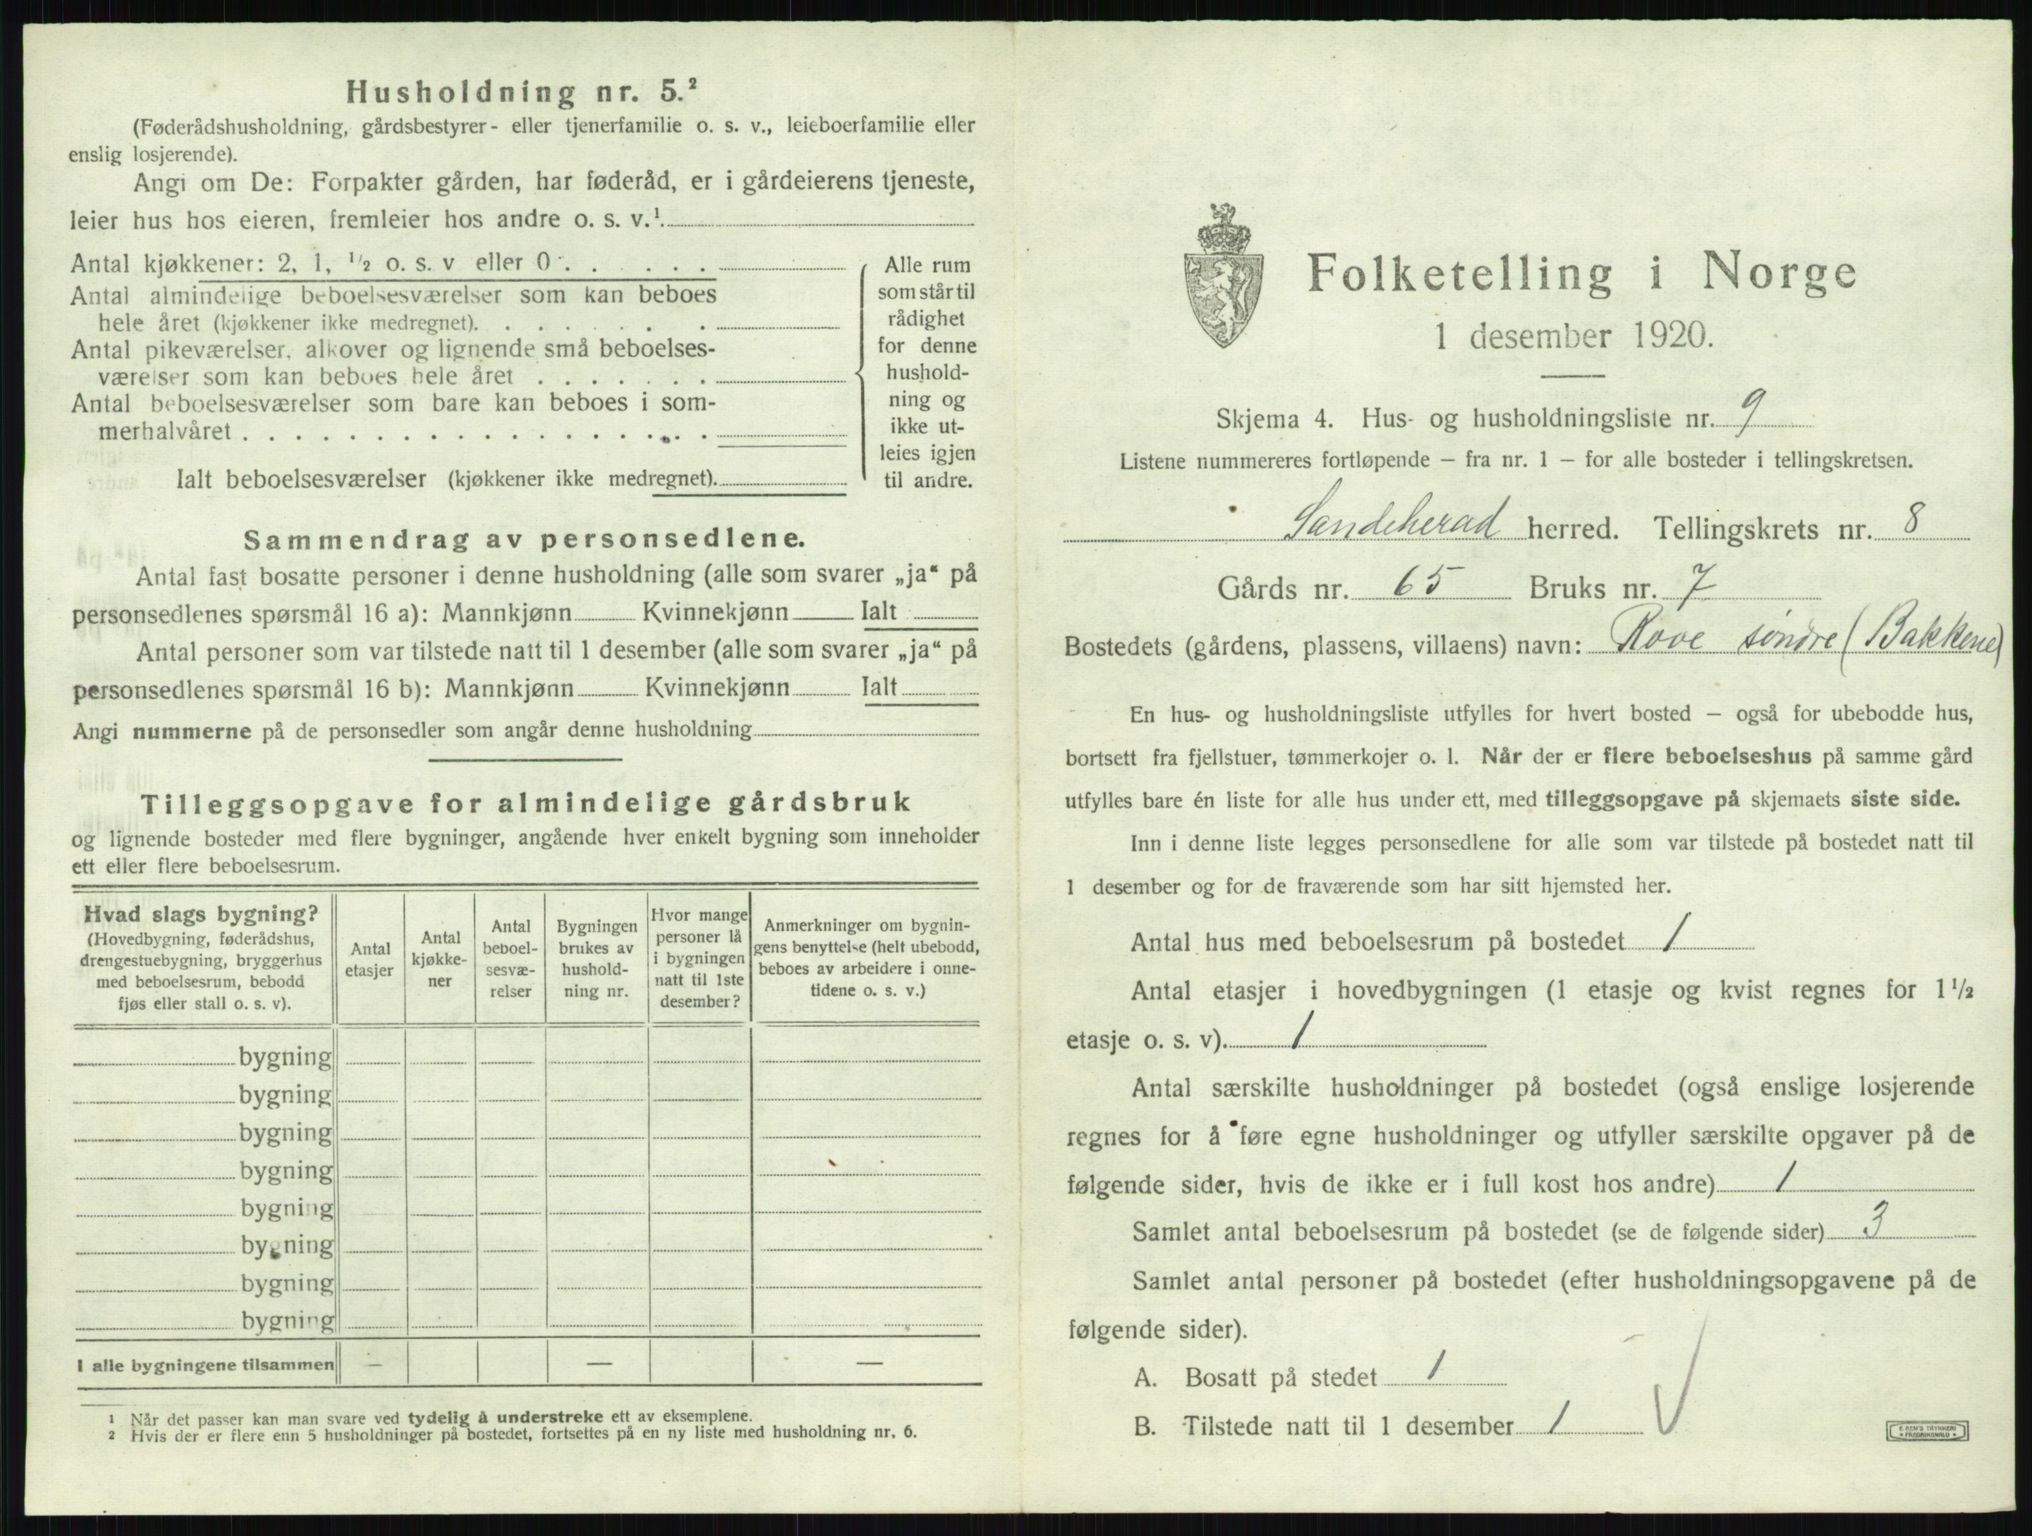 Husholdning nr. 5.²
(Føderådshusholdning, gårdsbestyrer- eller tjenerfamilie o. s. v., leieboerfamilie eller
enslig losjerende).
Angi om De: Forpakter gården, har føderåd, er i gårdeierens tjeneste,
leier hus hos eieren, fremleier hos andre o. s. v.¹
Antal kjøkkener: 2, 1, ½ o. s. v eller 0
Antal almindelige beboelsesværelser som kan beboes
hele året (kjøkkener ikke medregnet).
Antal pikeværelser, alkover og lignende små beboelses-
værelser som kan beboes hele året
Antal beboelsesværelser som bare kan beboes i som-
merhalvåret
Ialt beboelsesværelser (kjøkkener ikke medregnet).
Alle rum
som står til
rådighet
for denne
hushold-
ning og
ikke ut-
leies igjen
til andre.
Sammendrag av personsedlene.
Antal fast bosatte personer i denne husholdning (alle som svarer „ja“ på
personsedlenes spørsmål 16 a): Mannkjønn Kvinnekjønn Ialt
Antal personer som var tilstede natt til 1 desember (alle som svarer „ja“ på
personsedlenes spørsmål 16 b): Mannkjønn Kvinnekjønn Ialt
Angi nummerne på de personsedler som angår denne husholdning
Tilleggsopgave for almindelige gårdsbruk
og lignende bosteder med flere bygninger, angående hver enkelt bygning som inneholder
ett eller flere beboelsesrum.
Hvad slags bygning?
(Hovedbygning, føderådshus,
drengestuebygning, bryggerhus
med beboelsesrum, bebodd
fjøs eller stall o. s. v).
Antal
etasjer
Antal
kjøkke-
ner
Antal
beboel-
sesvæ-
relser
Bygningen
brukes av
hushold-
ning nr.
Hvor mange
personer lå
i bygningen
natt til 1ste
desember?
Anmerkninger om bygnin-
gens benyttelse (helt ubebodd,
beboes av arbeidere i onne-
tidene o. s. v.)
bygning
bygning
bygning
bygning
bygning
bygning
bygning
bygning
I alle bygningene tilsammen — — —
1 Når det passer kan man svare ved tydelig å understreke ett av eksemplene.
2 Hvis der er flere enn 5 husholdninger på bostedet, fortsettes på en ny liste med husholdning nr. 6.
Folketelling i Norge
1 desember 1920.
Skjema 4. Hus- og husholdningsliste nr. 9
Listene nummereres fortløpende — fra nr. 1 — for alle bosteder i tellingskretsen.
Sandeherad herred. Tellingskrets nr. 8
Gårds nr. 65 Bruks nr. 7
Bostedets (gårdens, plassens, villaens) navn: Rove søndre (Bakkene)
En hus- og husholdningsliste utfylles for hvert bosted — også for ubebodde hus,
bortsett fra fjellstuer, tømmerkojer o. l. Når der er flere beboelseshus på samme gård
utfylles bare én liste for alle hus under ett, med tilleggsopgave på skjemaets siste side.
Inn i denne liste legges personsedlene for alle som var tilstede på bostedet natt til
1 desember og for de fraværende som har sitt hjemsted her.
Antal hus med beboelsesrum på bostedet 1
Antal etasjer i hovedbygningen (1 etasje og kvist regnes for 1½
etasje o. s. v). 1
Antal særskilte husholdninger på bostedet (også enslige losjerende
regnes for å føre egne husholdninger og utfyller særskilte opgaver på de
følgende sider, hvis de ikke er i full kost hos andre) 1
Samlet antal beboelsesrum på bostedet (se de følgende sider) 3
Samlet antal personer på bostedet (efter husholdningsopgavene på de
følgende sider).
A. Bosatt på stedet 1
B. Tilstede natt til 1 desember 1